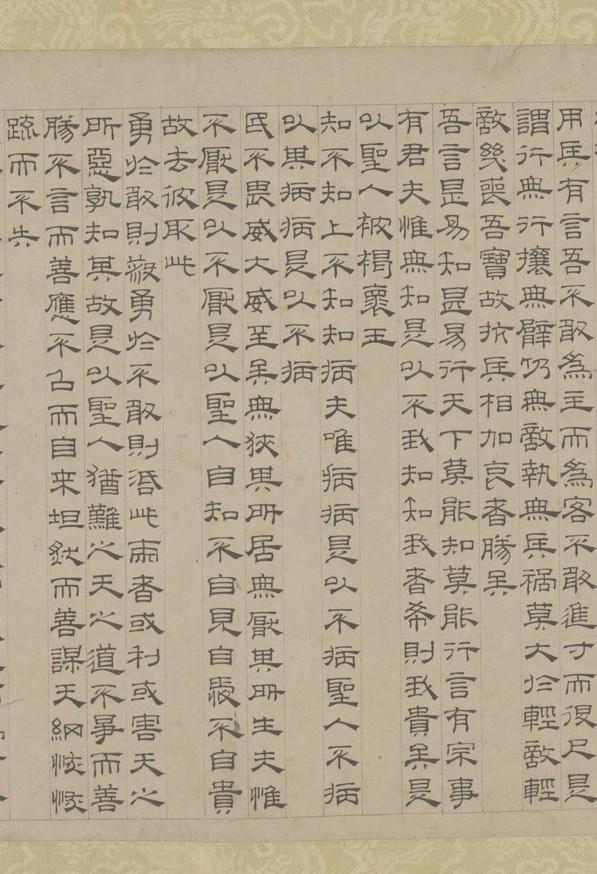 用兵有言吾不敢為主而為客不敢進寸而退尺是
謂行無行攘無臂仍無敵執無兵禍莫大於輕敵輕
敵幾喪吾寶故抗兵相加哀者勝矣
吾言甚易知甚易行天下莫能知莫能行言有宗事
有君夫惟無知是以不我知知我者希則我貴矣是
以聖人被褐懷玉
知不知上不知知病夫唯病病是以不病聖人不病
以其病病是以不病
民不畏威大威至矣無狹其所居無厭其所生夫惟
不厭是以不厭是以聖人自知不自見自愛不自貴
故去彼取此
勇於敢則殺勇於不敢則活此兩者或利或害天之
所惡孰知其故是以聖人猶難之天之道不爭而善
勝不言而善應不召而自来坦然而善謀天網恢恢
疏而不失